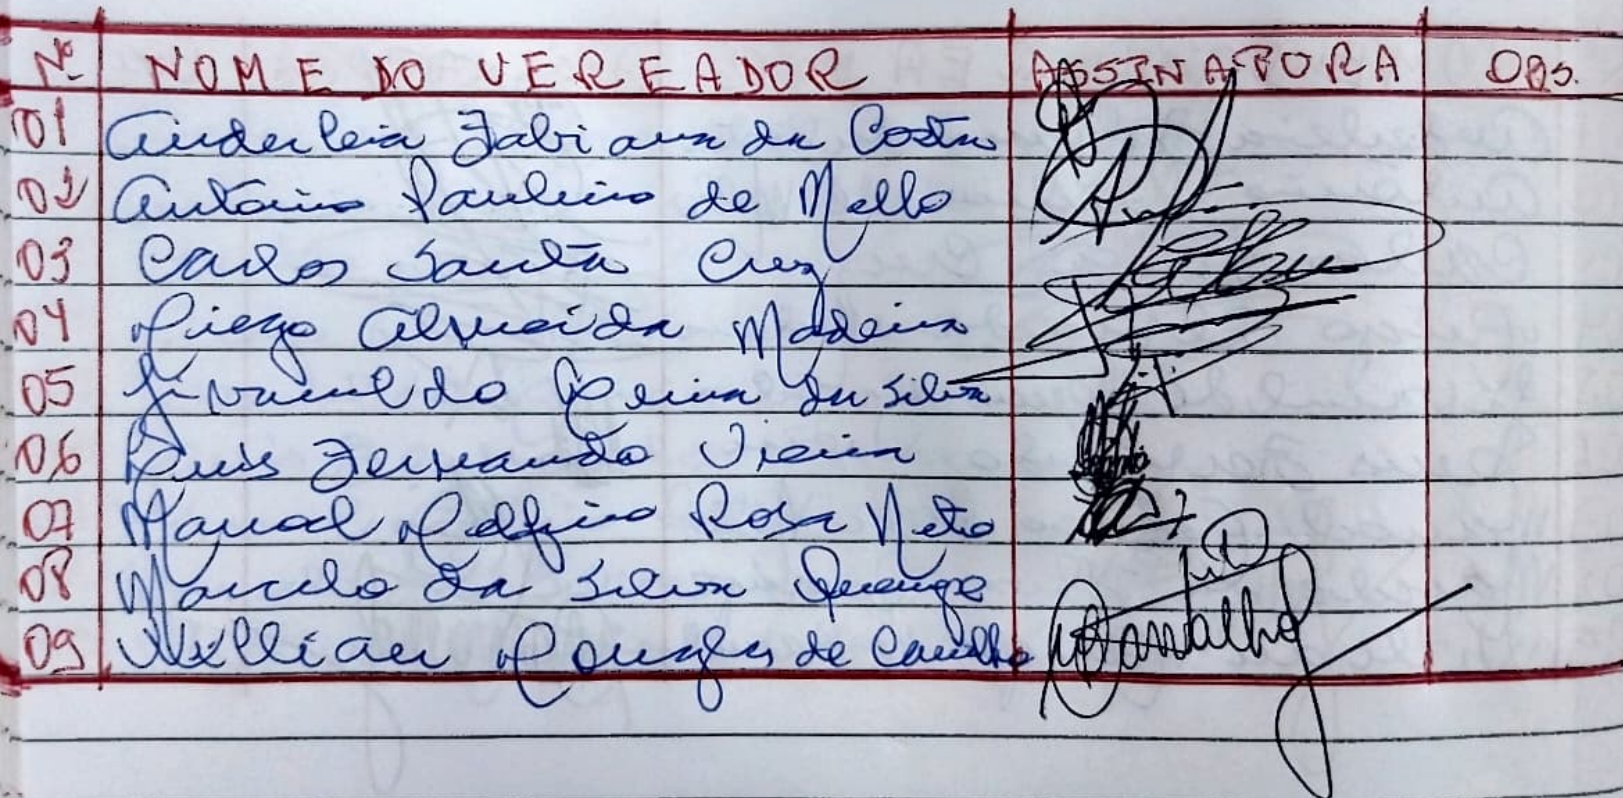 Nº NOME DO VEREADOR ASSINATURA OBS.
01 Anderleia Fabiana da Costa
02 Antônio Paulino de Mello
03 Carlos Santa Cruz
04 Diego Almeida Madeira
05 Givanildo Pereira da Silva
06 Luis Fernando Vieira
07 Manoel Delfino Rosa Neto
08 Marcelo da Silva
09 Willian Gonzles de Carvalho Carvalho